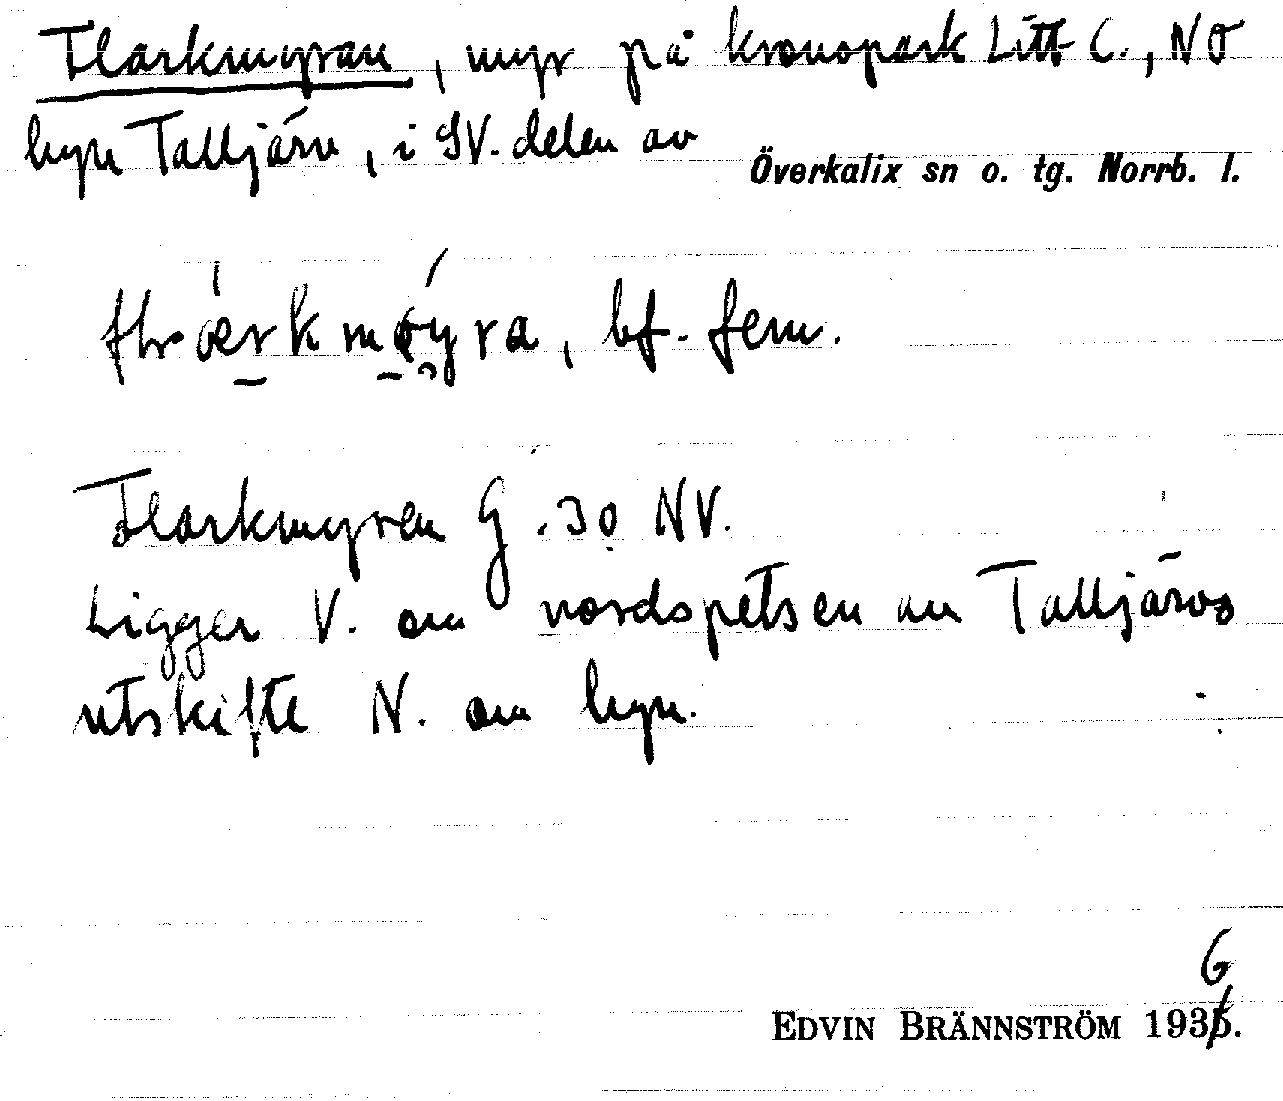 Flarkmyran, myr på kronopark Litt C., NO
byn Talljärv, i SV. delen av
Överkalix sn o. tg. Norrb. l.
bf. fem.
Flarkmyren G .30 NV.
Ligger V. om nordspetsen av Talljärvs
utskifte N. om byn.
6
EDVIN BRÄNNSTRÖM 193